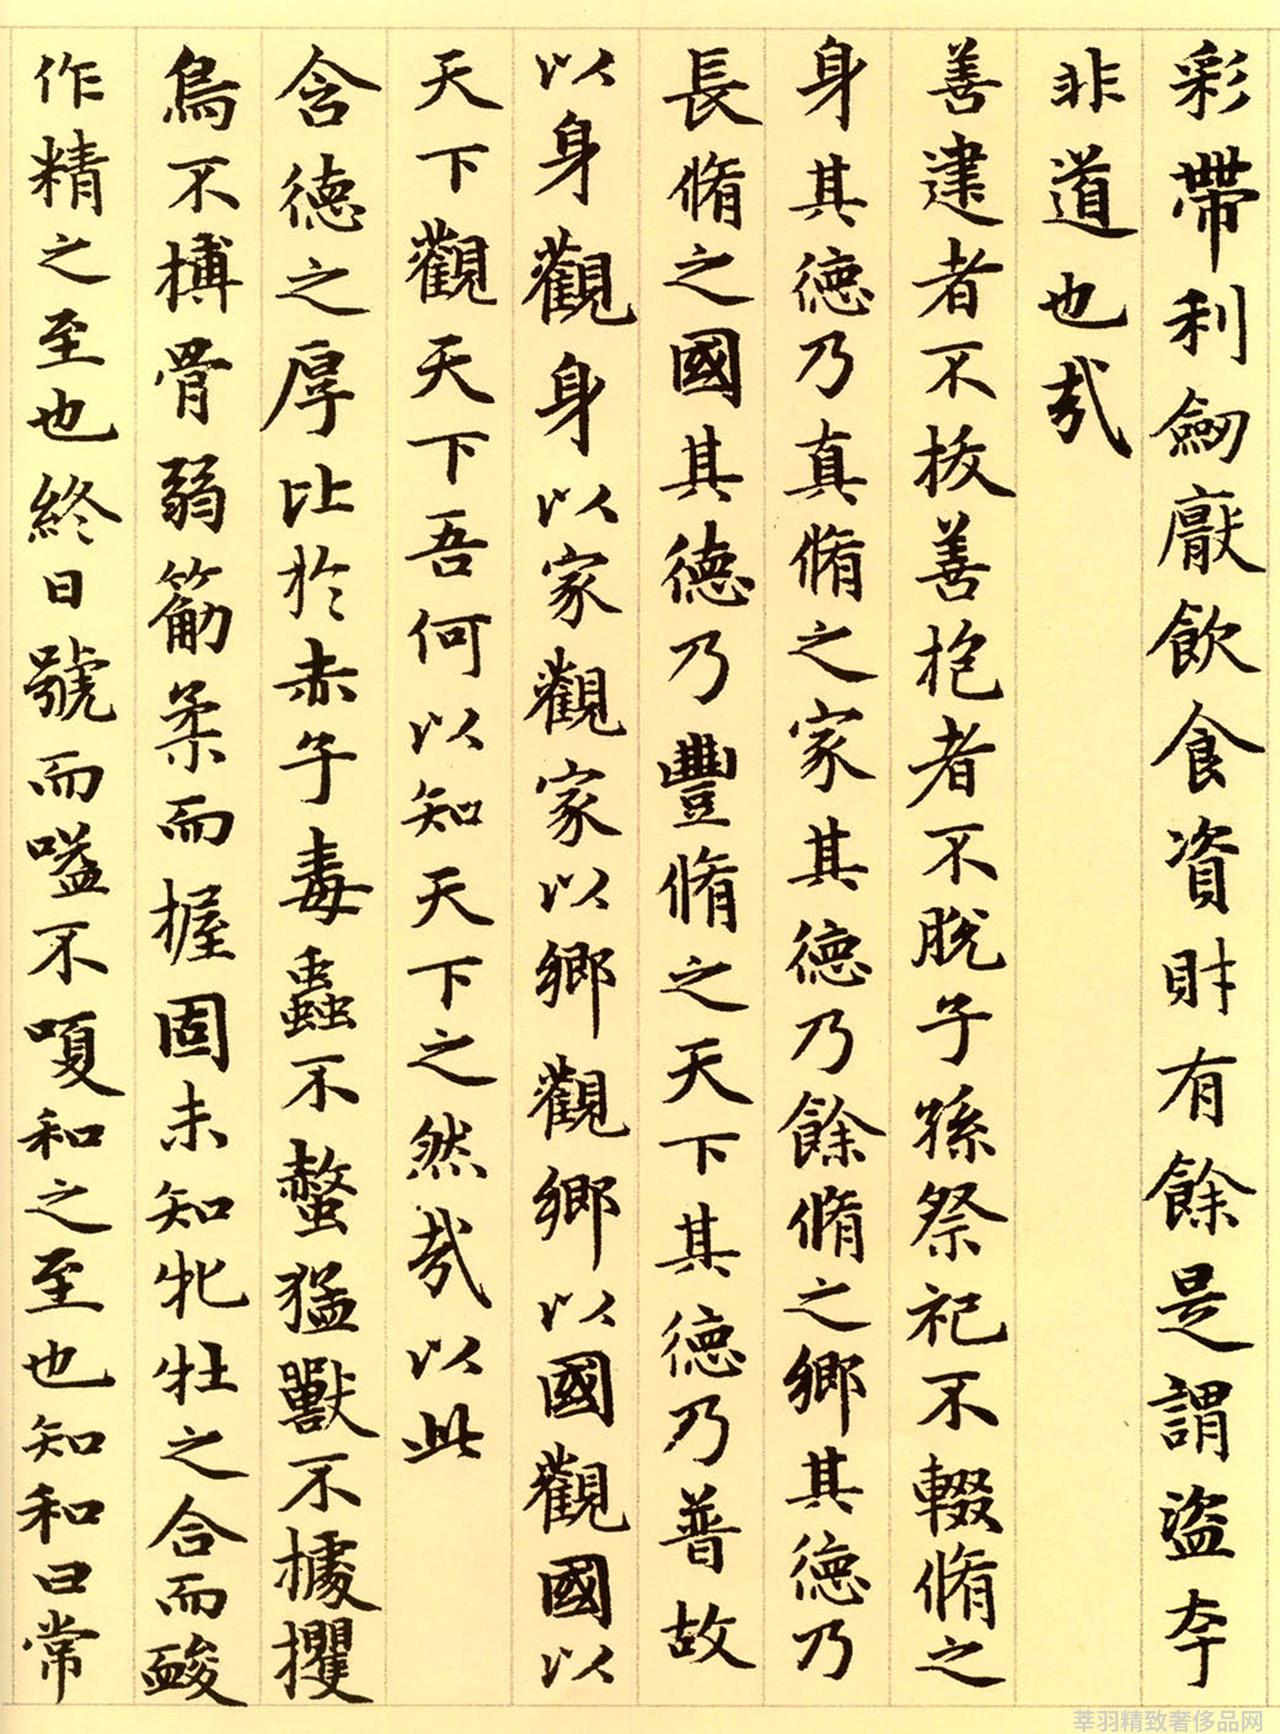 彩帶利劔厭飲食資財有餘是謂盜夸
非道也㢤
善建者不拔善抱者不脫子孫祭祀不輟脩之
身其德乃真脩之家其德乃餘脩之鄉其德乃
長脩之國其德乃豐脩之天下其德乃普故
以身觀身以家觀家以鄉觀鄉以國觀國以
天下觀天下吾何以知天下之然㢤以此
含德之厚比於赤子毒蟲不螫猛獸不據攫
鳥不搏骨弱筋柔而握固未知牝牡之合而酸
作精之至也終日號而嗌不嗄和之至也知和曰常
莘羽精致奢侈品网